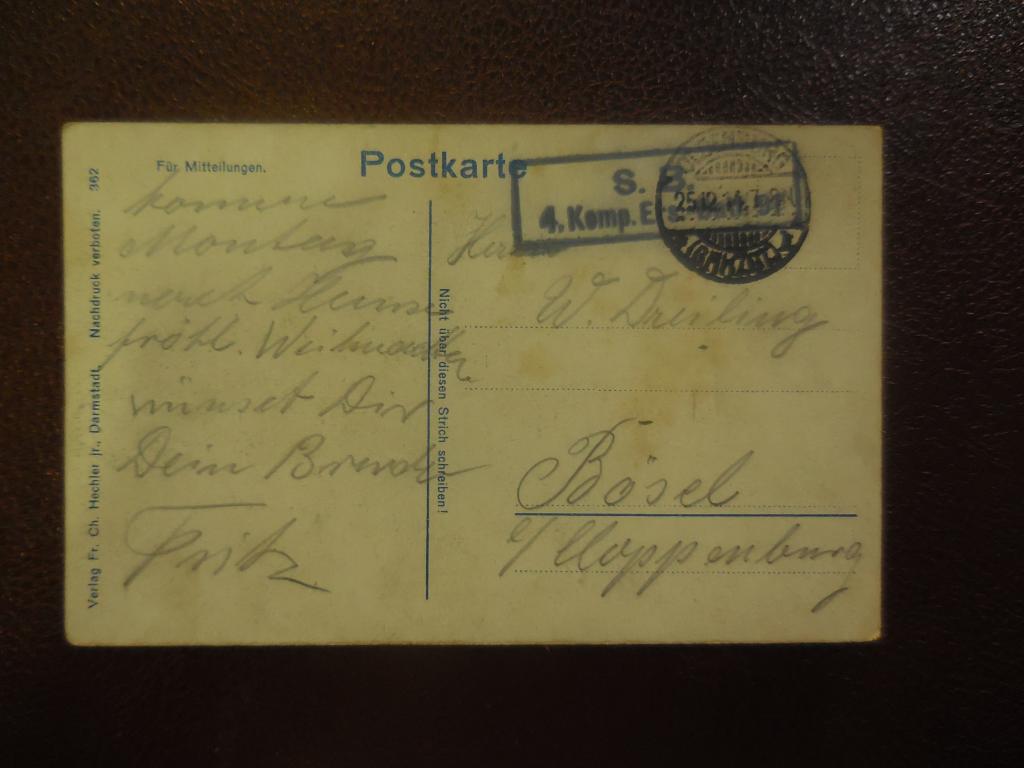 Für Mitteilungen.
Postkarte
S. B.
4. Komp.
25.12.14.7
komme
Montag
nach Hause
fröhl. Weihnachten
wünscht Dir
Dein Bruder
Fritz
Herrn
W. Dreiling
Bösel
b/ Cloppenburg
Nicht über diesen Strich schreiben!
Verlag Fr. Ch. Hechler jr., Darmstadt. Nachdruck verboten. 362